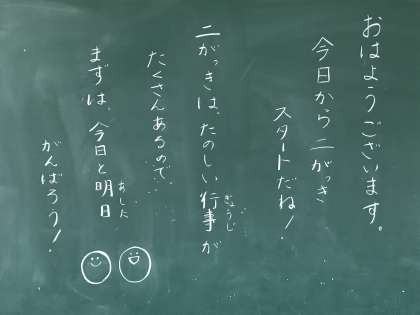 おはようございます。
今日から二がっき
スタートだね！
二がっきは、たのしい行事が
ぎょうじ
たくさんあるので、
まずは、今日と明日
あした
がんばろう！